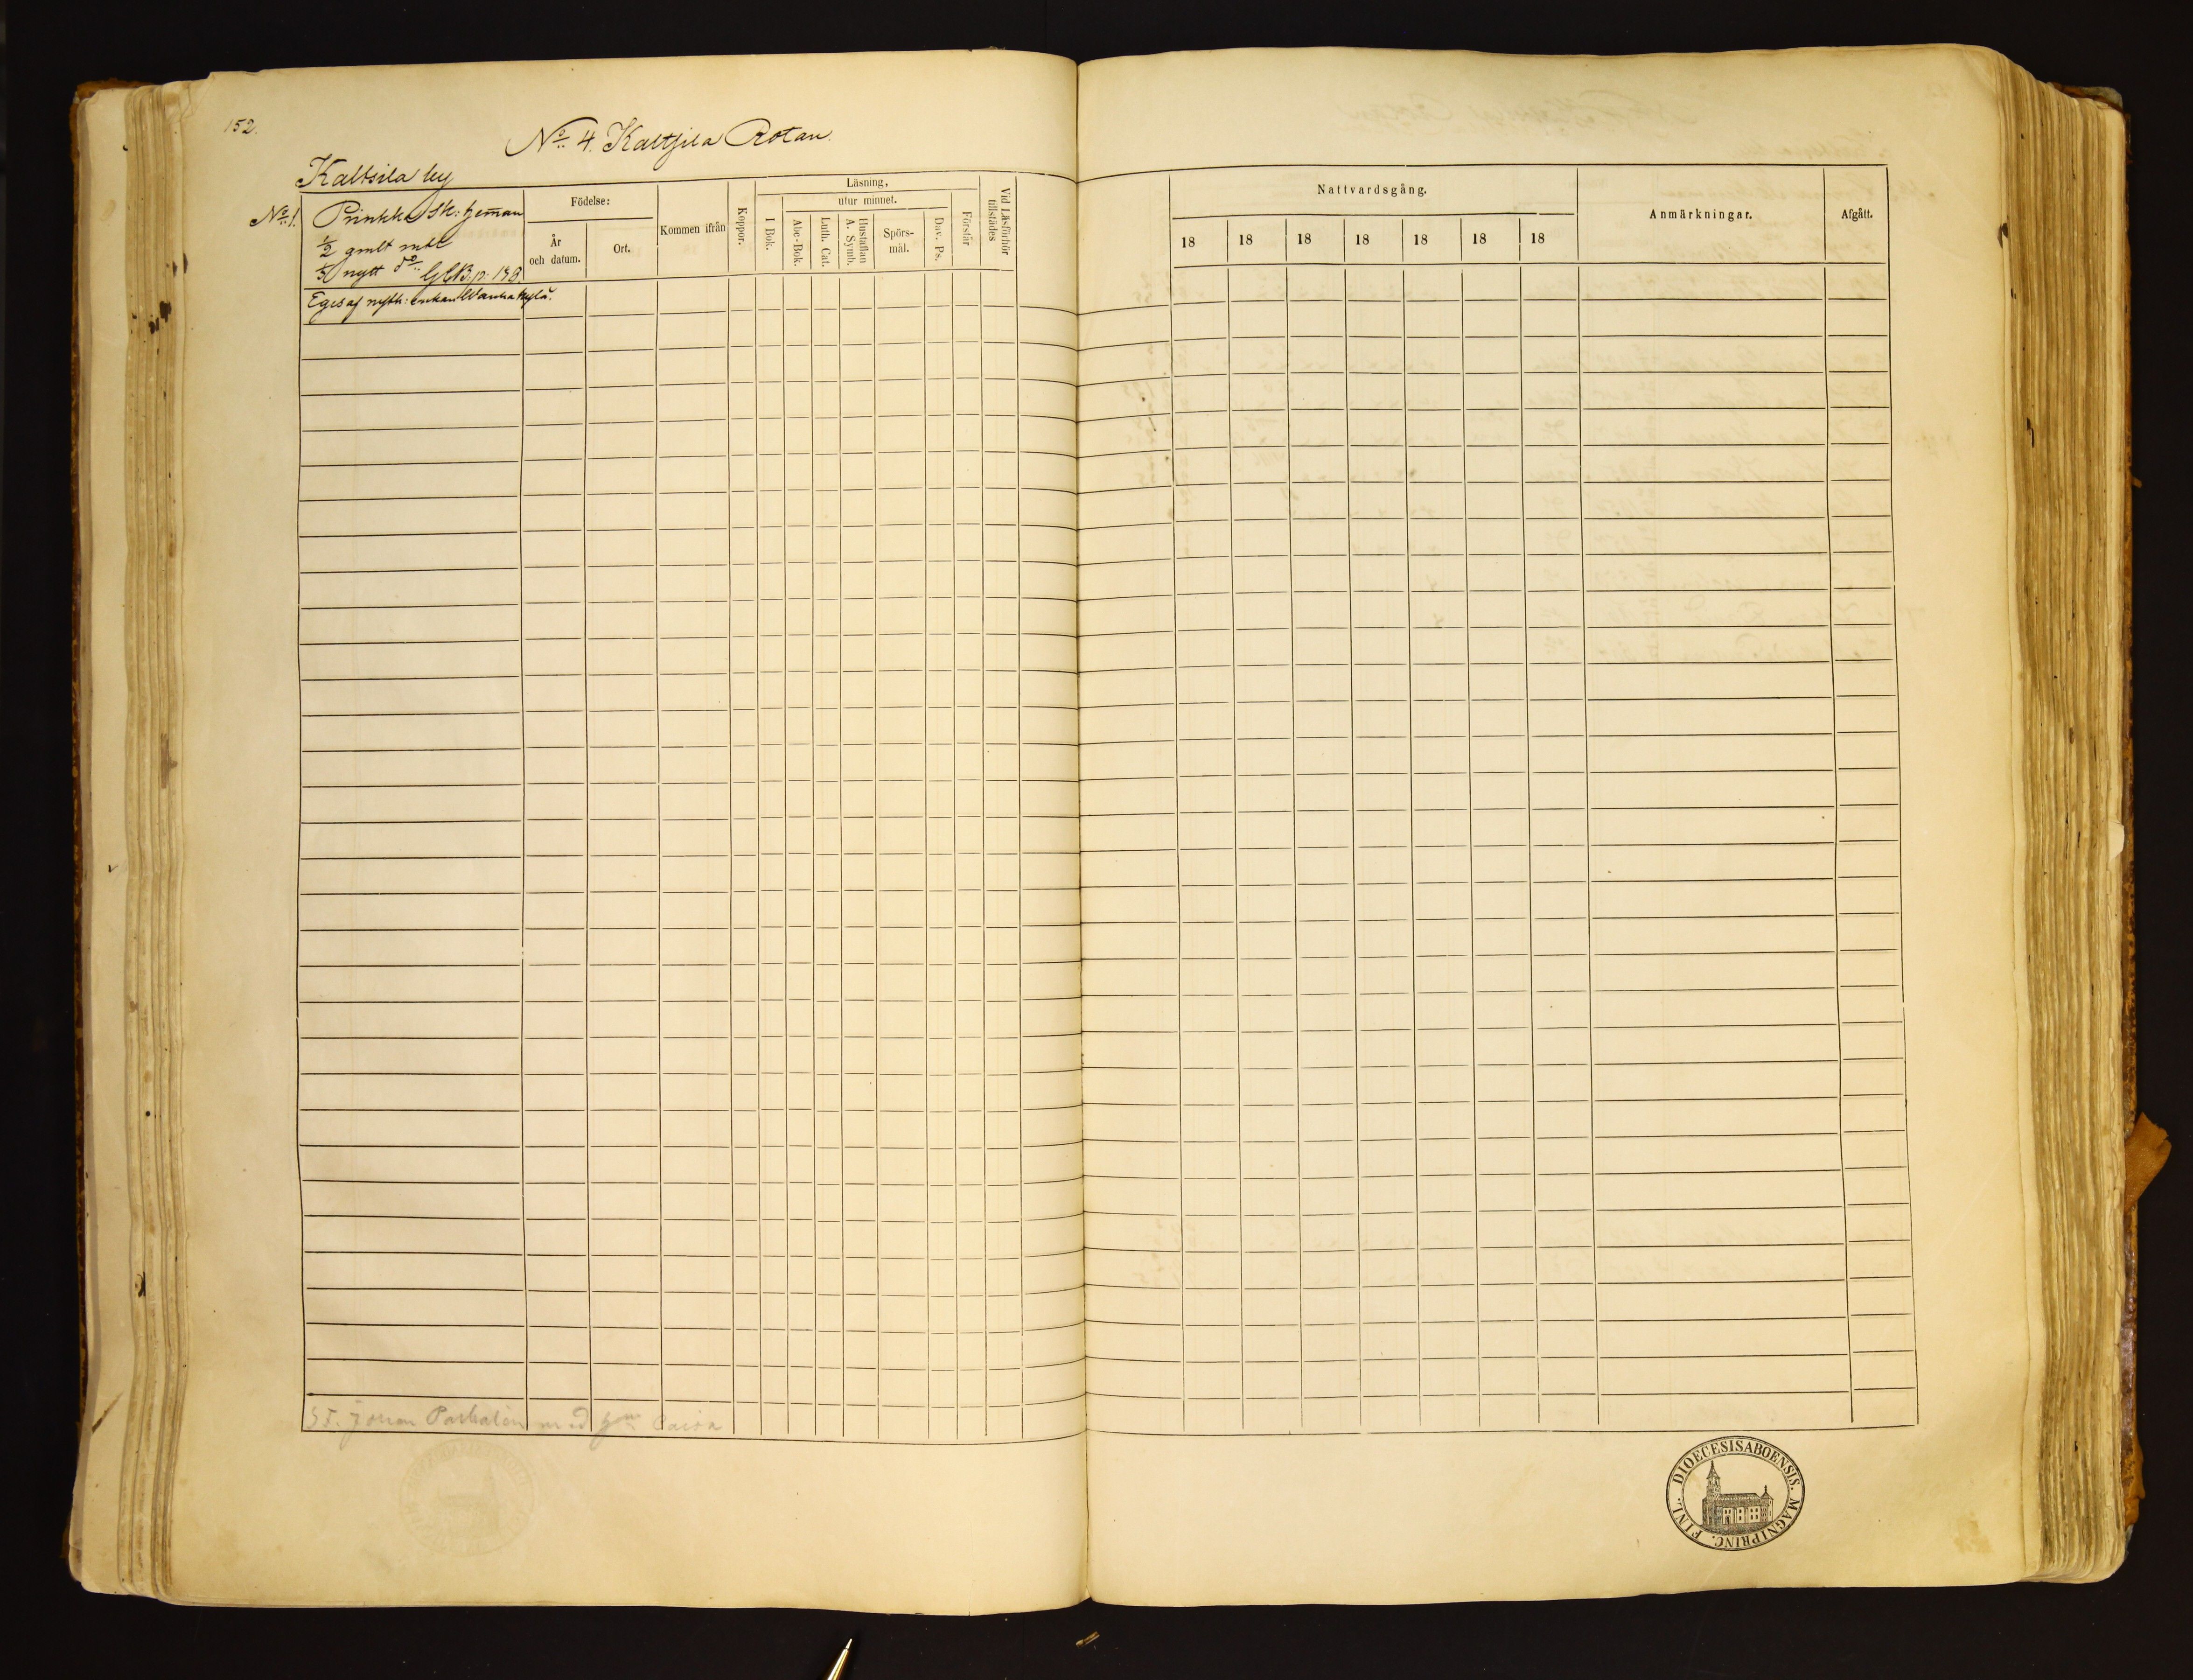 152.
No. 4. Kaltsila Rotan.
Kaltsila by
No. 1. Prinkka Sk: heman
½ gmlt mtl
nytt do GCB. p. 138.
Eges af nyth: enkan Wanhakylä.
Födelse:
År och datum.
Ort.
Kommen ifrån
Koppor.
Läsning,
utur minnet.
I Bok.
Abc-Bok.
Luth. Cat.
Hustaflan A. Symb.
Spörs-mål.
Dav. Ps.
Förstår
Vid Läsförhör tillstädes
Nattvardsgång.
18 18 18 18 18 18 18
Anmärkningar.
Afgått.
Johan med Caisa
DIOECESIS ABOENSIS. MAGNI PRINC. FINL.